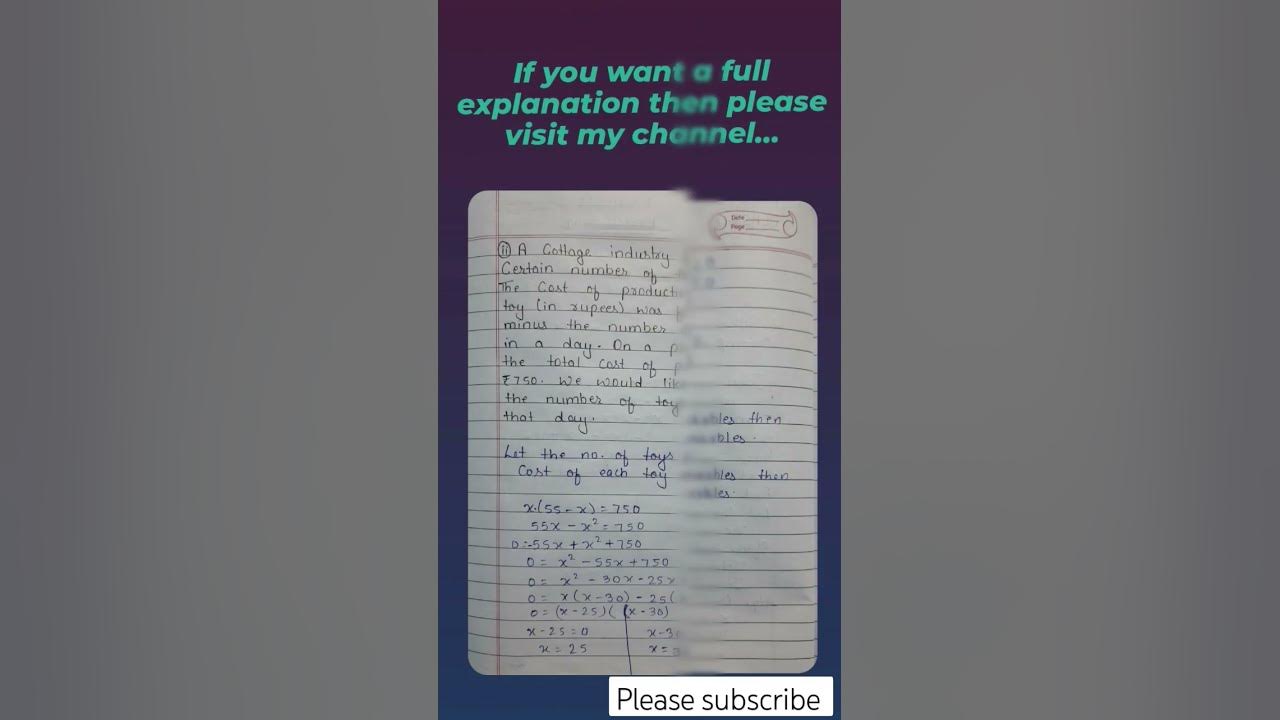 If you want a full
explanation then please
visit my channel...
Date
Page
(ii) A Cottage industry
Certain number of
The Cost of product
toy (in rupees) was
minus the number
in a day. On a p
the total cost of p
₹750. We would lik
the number of toy
that day.
ables then
ables.
Let the no. of toys
Cost of each toy
ables then
ables.
x.(55-x) = 750
55x - x² = 750
0 = -55x + x² + 750
0 = x² - 55x + 750
0 = x² - 30x - 25x
0 = x(x-30) - 25(
0 = (x-25)( (x-30)
x-25=0 x-3
x = 25 x =
Please subscribe